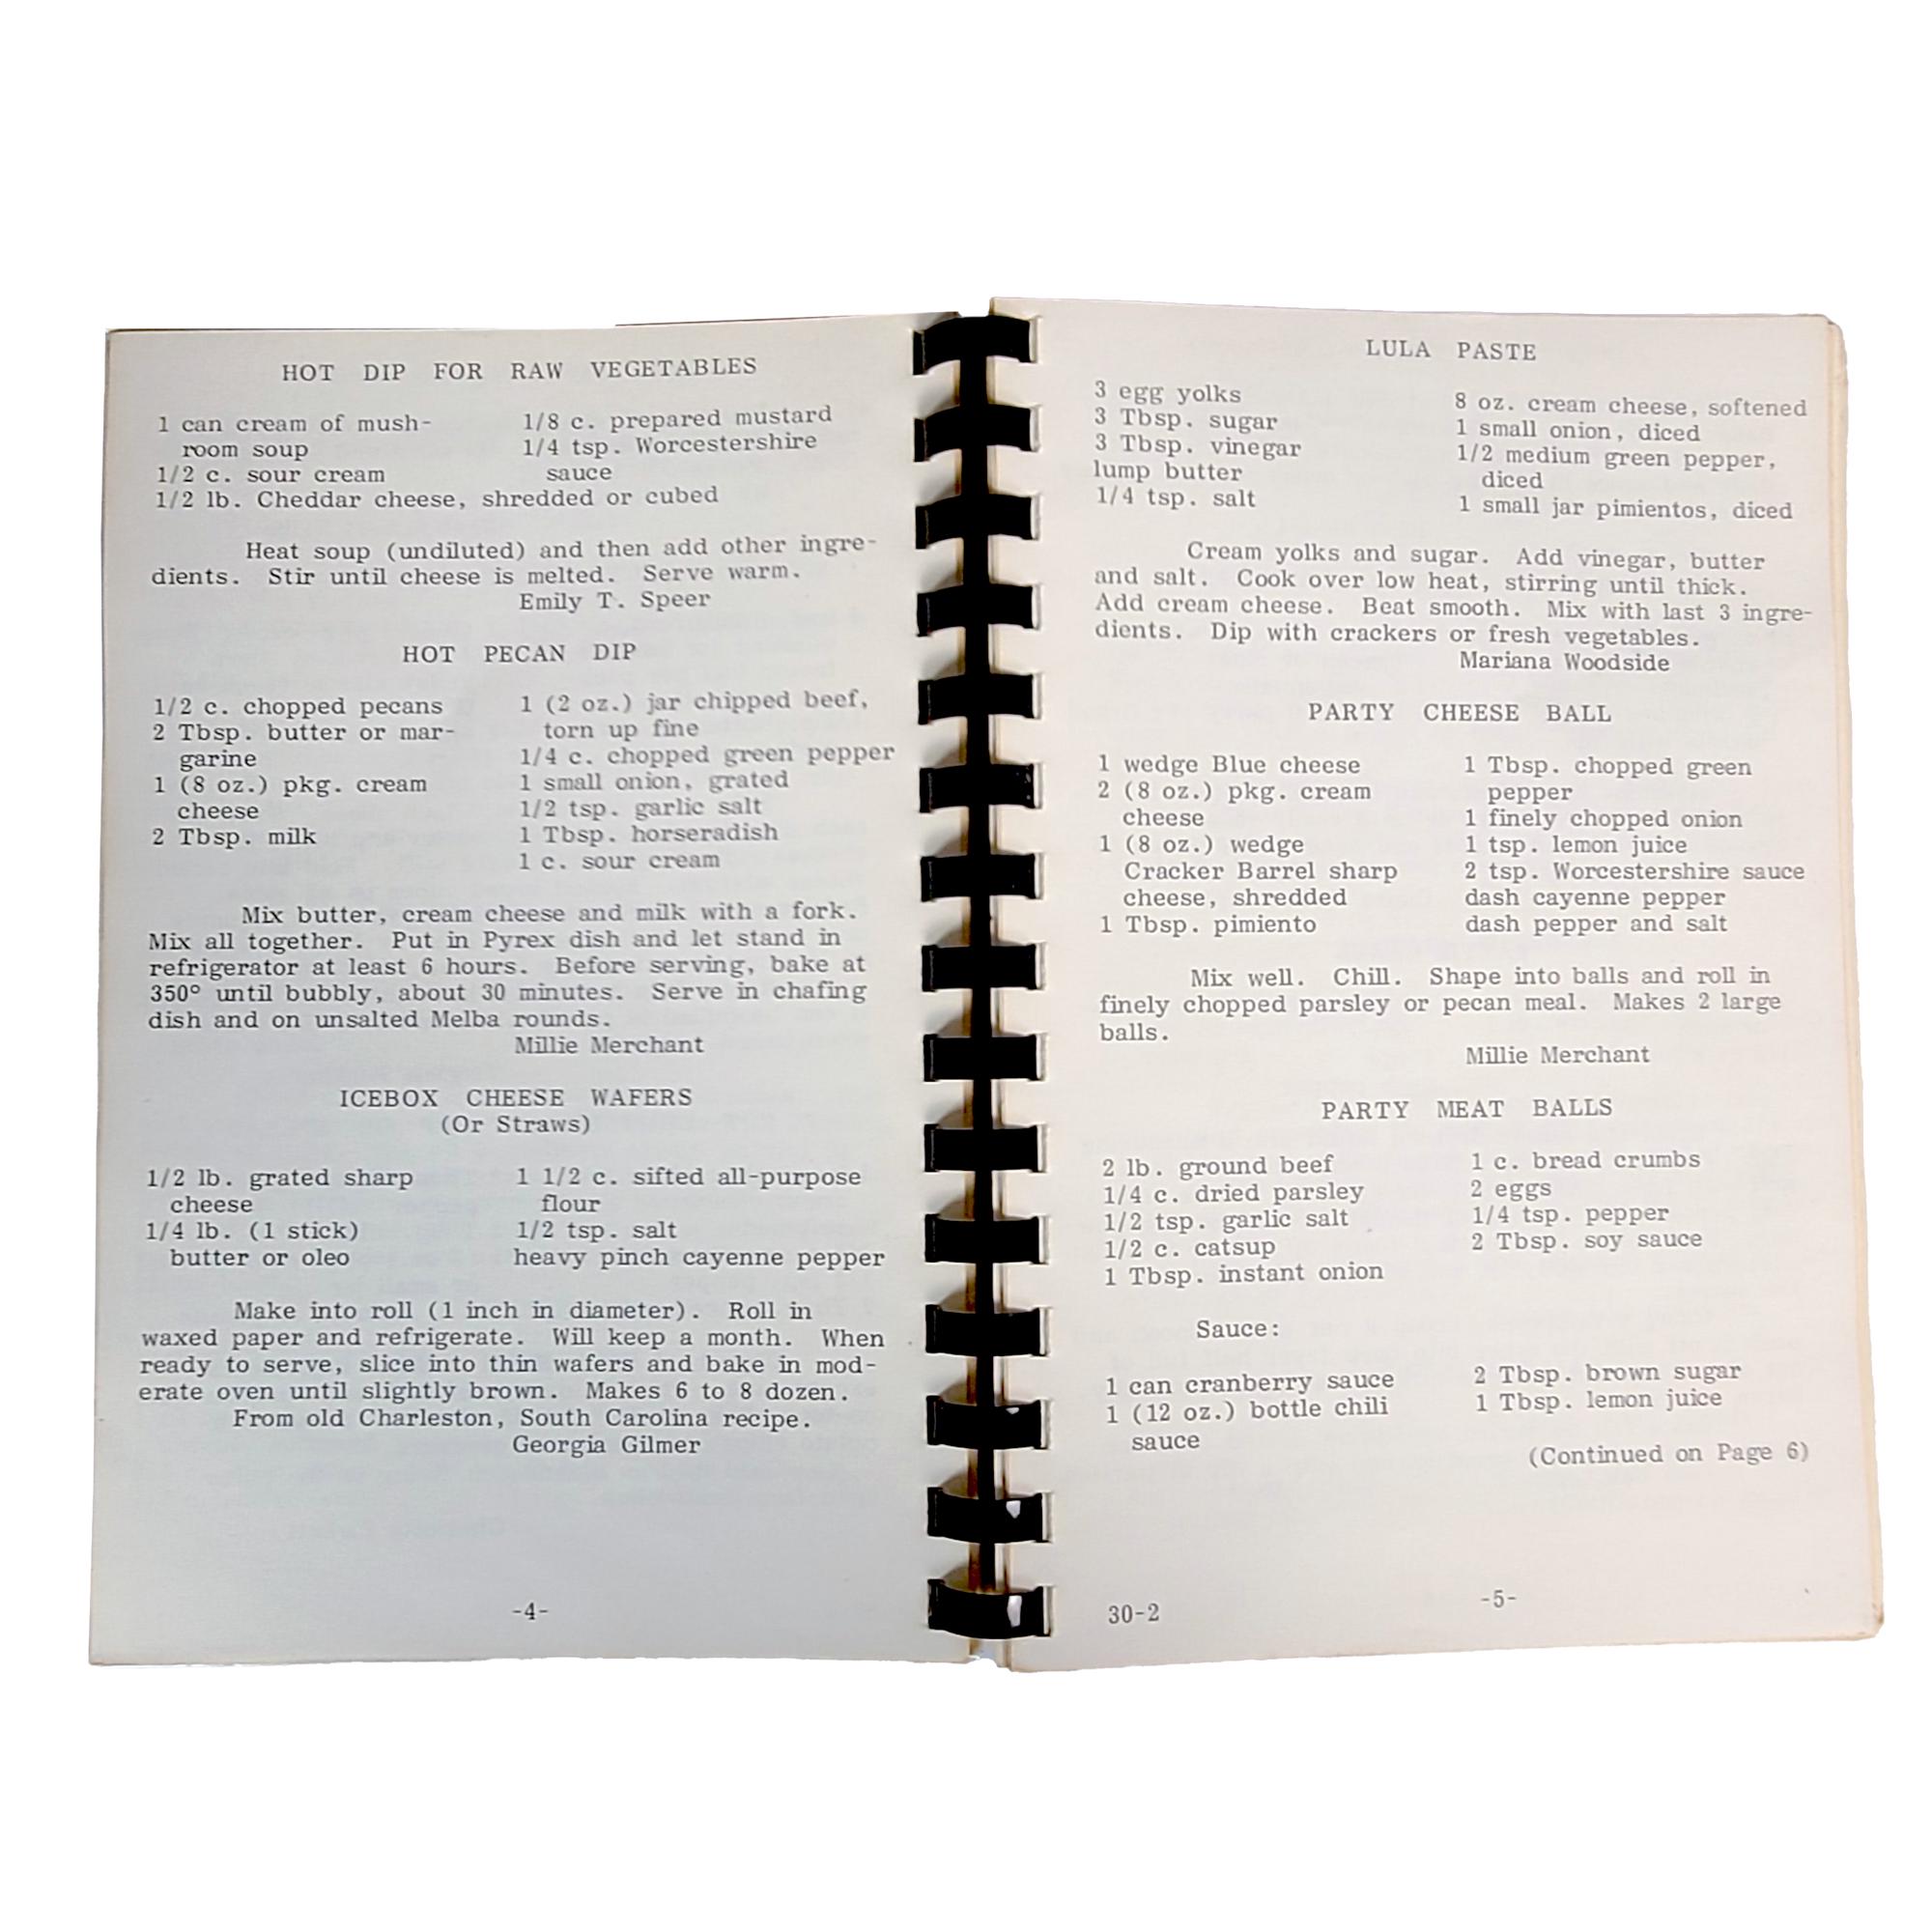 HOT DIP FOR RAW VEGETABLES
1 can cream of mush-
room soup
1/2 c. sour cream
1/8 c. prepared mustard
1/4 tsp. Worcestershire
sauce
1/2 lb. Cheddar cheese, shredded or cubed
Heat soup (undiluted) and then add other ingre-
dients. Stir until cheese is melted. Serve warm.
Emily T. Speer
HOT PECAN DIP
1/2 c. chopped pecans
2 Tbsp. butter or mar-
garine
1 (8 oz.) pkg. cream
cheese
2 Tbsp. milk
1 (2 oz.) jar chipped beef,
torn up fine
1/4 c. chopped green pepper
1 small onion, grated
1/2 tsp. garlic salt
1 Tbsp. horseradish
1 c. sour cream
Mix butter, cream cheese and milk with a fork.
Mix all together. Put in Pyrex dish and let stand in
refrigerator at least 6 hours. Before serving, bake at
350° until bubbly, about 30 minutes. Serve in chafing
dish and on unsalted Melba rounds.
Millie Merchant
ICEBOX CHEESE WAFERS
(Or Straws)
1/2 lb. grated sharp
cheese
1/4 lb. (1 stick)
butter or oleo
1 1/2 c. sifted all-purpose
flour
1/2 tsp. salt
heavy pinch cayenne pepper
Make into roll (1 inch in diameter). Roll in
waxed paper and refrigerate. Will keep a month. When
ready to serve, slice into thin wafers and bake in mod-
erate oven until slightly brown. Makes 6 to 8 dozen.
From old Charleston, South Carolina recipe.
Georgia Gilmer
-4-
LULA PASTE
3 egg yolks
3 Tbsp. sugar
3 Tbsp. vinegar
lump butter
1/4 tsp. salt
8 oz. cream cheese, softened
1 small onion, diced
1/2 medium green pepper,
diced
1 small jar pimientos, diced
Cream yolks and sugar. Add vinegar, butter
and salt. Cook over low heat, stirring until thick.
Add cream cheese. Beat smooth. Mix with last 3 ingre-
dients. Dip with crackers or fresh vegetables.
Mariana Woodside
PARTY CHEESE BALL
1 wedge Blue cheese
2 (8 oz.) pkg. cream
cheese
1 (8 oz.) wedge
Cracker Barrel sharp
cheese, shredded
1 Tbsp. pimiento
1 Tbsp. chopped green
pepper
1 finely chopped onion
1 tsp. lemon juice
2 tsp. Worcestershire sauce
dash cayenne pepper
dash pepper and salt
Mix well. Chill. Shape into balls and roll in
finely chopped parsley or pecan meal. Makes 2 large
balls.
Millie Merchant
PARTY MEAT BALLS
2 lb. ground beef
1/4 c. dried parsley
1/2 tsp. garlic salt
1/2 c. catsup
1 Tbsp. instant onion
1 c. bread crumbs
2 eggs
1/4 tsp. pepper
2 Tbsp. soy sauce
Sauce:
1 can cranberry sauce
1 (12 oz.) bottle chili
sauce
2 Tbsp. brown sugar
1 Tbsp. lemon juice
(Continued on Page 6)
30-2
-5-